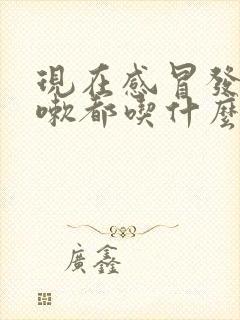 現在感冒發
嗽都喫什麼
廣鑫